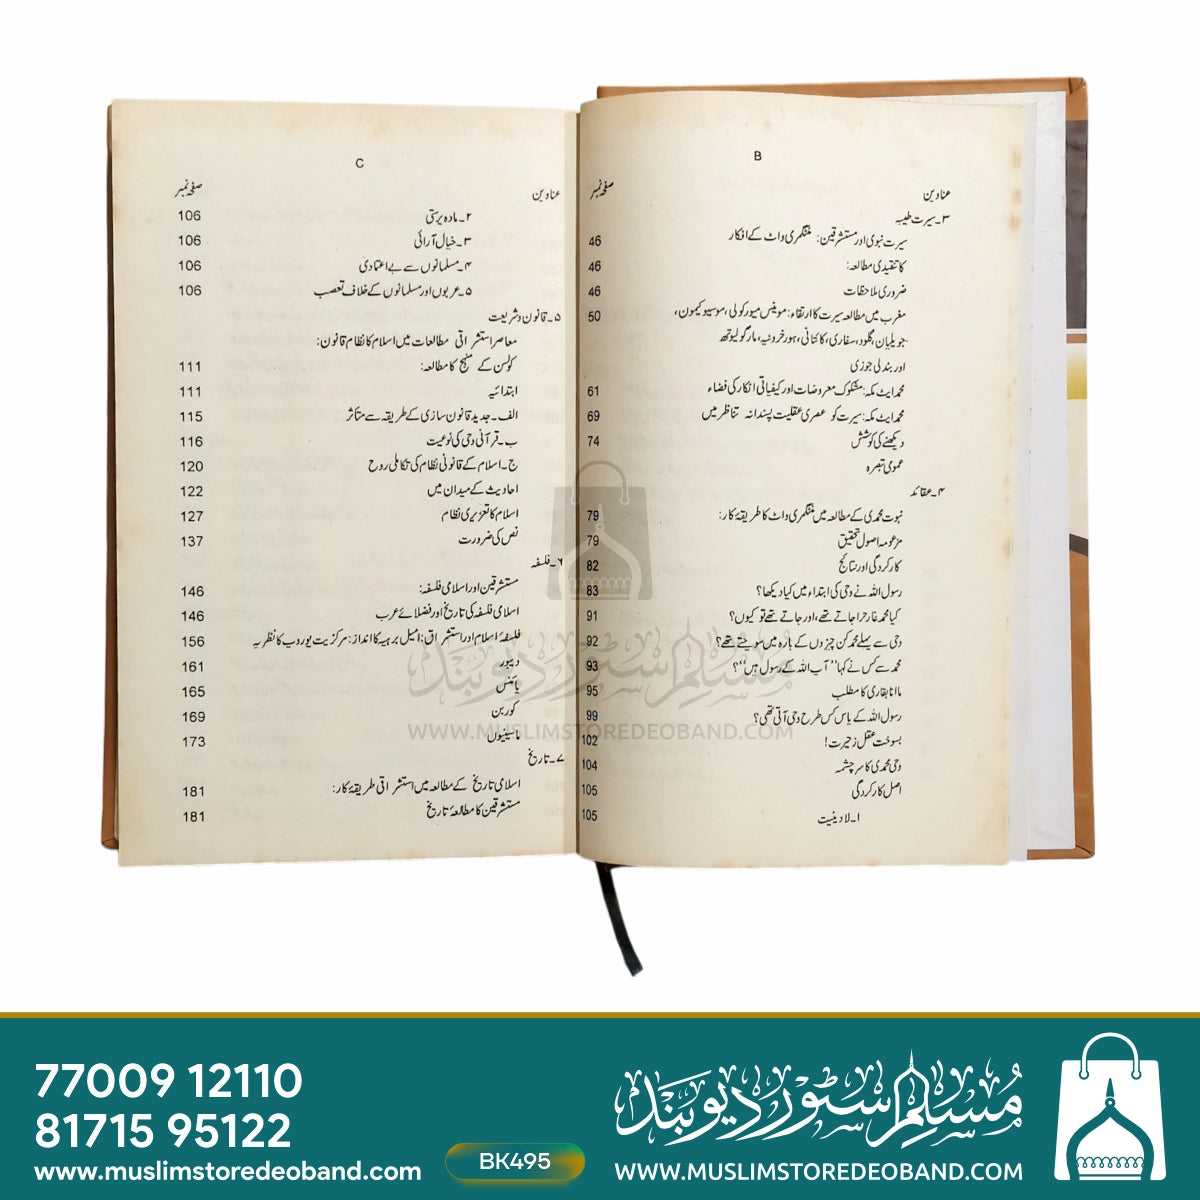 B
عناوین صفحہ نمبر
۳۔سیرت طیبہ
سیرت نبوی اور مستشرقین: منٹگمری واٹ کے افکار 46
کا تنقیدی مطالعہ: 46
ضروری ملاحظات 46
مغرب میں مطالعہ سیرت کا ارتقاء: موینس میور کولی، موسیو کیمون، 50
جویلیان، گلود، سفاری، کائتانی، ہور خرونیہ، مارگولیوتھ
اور بندلی جوزی
محمد ایٹ مکہ: مشکوک معروضات اور کیفیاتی افکار کی فضاء 61
محمد ایٹ مکہ: سیرت کو عصری عقلیت پسندانہ تناظر میں 69
دیکھنے کی کوشش 74
عمومی تبصرہ
۴۔عقائد
نبوت محمدی کے مطالعہ میں منٹگمری واٹ کا طریقۂ کار: 79
مزعومہ اصول تحقیق 79
کارکردگی اور نتائج 82
رسول اللہ نے وحی کی ابتداء میں کیا دیکھا؟ 83
کیا محمد غار حرا جاتے تھے، اور جاتے تھے تو کیوں؟ 91
وحی سے پہلے محمد کن چیزوں کے بارہ میں سوچتے تھے؟ 92
محمد سے کس نے کہا ''آپ اللہ کے رسول ہیں''؟ 93
ماانا بقاری کا مطلب 95
رسول اللہ کے پاس کس طرح وحی آتی تھی؟ 99
بسوخت عقل زحیرت! 102
وحی محمدی کا سرچشمہ 104
اصل کارکردگی 105
۱۔لادینیت 105
C
عناوین صفحہ نمبر
۲۔مادہ پرستی 106
۳۔خیال آرائی 106
۴۔مسلمانوں سے بے اعتمادی 106
۵۔عربوں اور مسلمانوں کے خلاف تعصب 106
۵۔قانون و شریعت
معاصر استشراقی مطالعات میں اسلام کا نظام قانون:
کولسن کے منہج کا مطالعہ: 111
ابتدائیہ 111
الف۔جدید قانون سازی کے طریقہ سے متأثر 115
ب۔قرآنی وحی کی نوعیت 116
ج۔اسلام کے قانونی نظام کی تکاملی روح 120
احادیث کے میدان میں 122
اسلام کا تعزیری نظام 127
نص کی ضرورت 137
۶۔فلسفہ
مستشرقین اور اسلامی فلسفہ: 146
اسلامی فلسفہ کی تاریخ اور فضلائے عرب 146
فلسفۂ اسلام اور استشراق: امیل برہیہ کا انداز: مرکزیت یوروپ کا نظریہ 156
دیبور 161
پائنس 165
کوربن 169
ماسینیوں 173
۷۔تاریخ
اسلامی تاریخ کے مطالعہ میں استشراقی طریقۂ کار: 181
مستشرقین کا مطالعۂ تاریخ 181
مسلم سٹور دیوبند
WWW.MUSLIMSTOREDEOBAND.COM
77009 12110
81715 95122
www.muslimstoredeoband.com
BK495
مسلم سٹور دیوبند
WWW.MUSLIMSTOREDEOBAND.COM